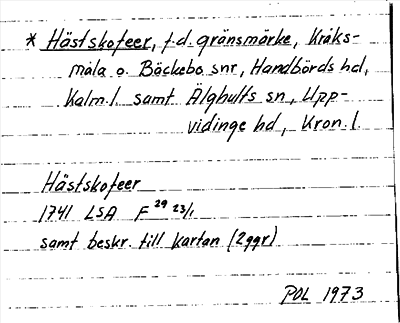 * Hästskofeer, f.d. gränsmärke, Kråks-
måla o. Bäckebo snr, Handbörds hd,
Kalm. l. samt Älghults sn, Upp-
vidinge hd, Kron. l.
Hästskofeer
1741 LSA F 29 23/1
samt beskr. till kartan (2ggr)
POL 1973